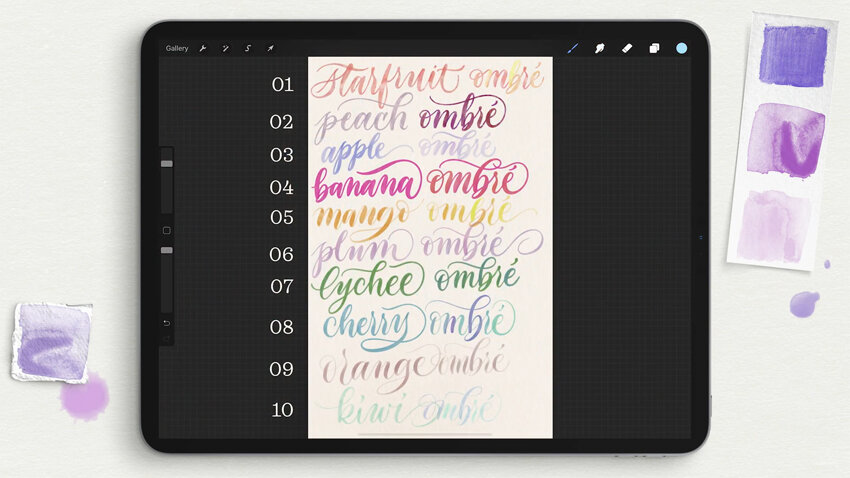 Gallery
01 starfruit ombré
02 peach ombré
03 apple ombré
04 banana ombré
05 mango ombré
06 plum ombré
07 lychee ombré
08 cherry ombré
09 orange ombré
10 kiwi ombré